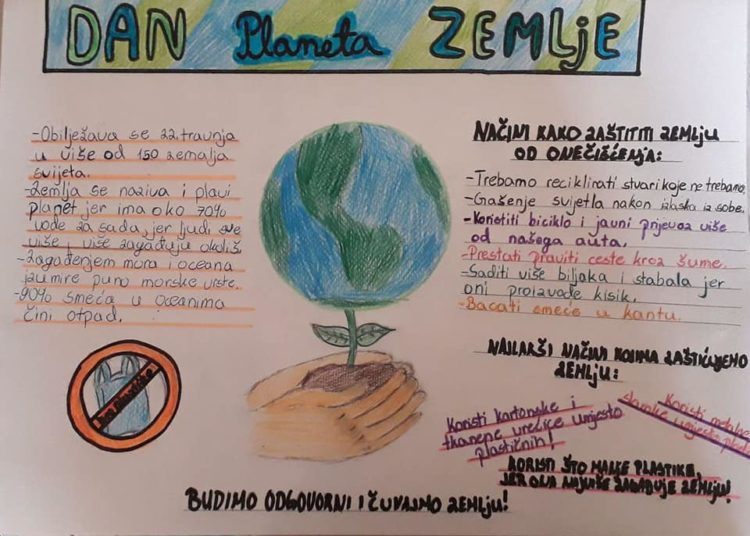 DAN Planeta ZEMLJE
-Obilježava se 22. travnja
u više od 150 zemalja
svijeta.
-Zemlja se naziva i plavi
planet jer ima oko 70%
vode za sada, jer ljudi sve
više i više zagađuju okoliš.
-Zagađenjem mora i oceana
izumire puno morske vrste.
-90% smeća u oceanima
čini otpad.
NAČINI KAKO ZAŠTITITI ZEMLJU
OD ONEČIŠĆENJA:
-Trebamo reciklirati stvari koje ne trebamo.
-Gašenje svjetla nakon izlaska iz sobe.
-Koristiti biciklo i javni prijevoz više
od našega auta.
-Prestati praviti ceste kroz šume.
-Saditi više biljaka i stabala jer
oni proizvode kisik.
-Bacati smeće u kantu.
NAJLAKŠI NAČINI KOJIMA ZAŠTIĆUJEMO
ZEMLJU:
Koristi kartonske i
tkanene vrećice umjesto
plastičnih!
Koristi metalne
slamke umjesto
KORISTI ŠTO MANJE PLASTIKE,
JER ONA NAJVIŠE ZAGAĐUJE ZEMLJU!
BUDIMO ODGOVORNI I ČUVAJMO ZEMLJU!